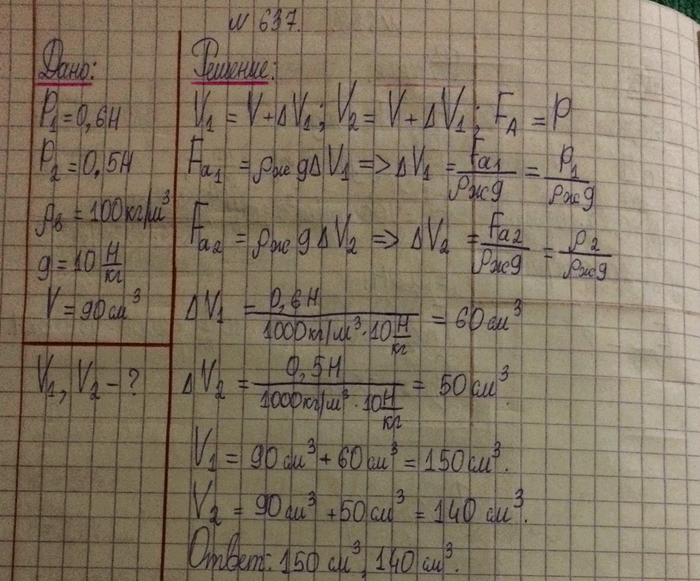 № 637.
Дано:
P₁ = 0,6Н
P₂ = 0,5Н
ρв = 100 кг/м³
g = 10 Н/кг
V = 90 см³
V₁, V₂ – ?
Решение:
V₁ = V + ΔV₁; V₂ = V + ΔV₁; F_A = P
Fa₁ = ρж g ΔV₁ => ΔV₁ = Fa₁/ρжg = P₁/ρжg
Fa₂ = ρж g ΔV₂ => ΔV₂ = Fa₂/ρжg = P₂/ρжg
ΔV₁ = 0,6Н/1000кг/м³·10Н/кг = 60 см³
ΔV₂ = 0,5Н/1000кг/м³·10Н/кг = 50 см³.
V₁ = 90 см³ + 60 см³ = 150 см³.
V₂ = 90 см³ + 50 см³ = 140 см³.
Ответ: 150 см³, 140 см³.